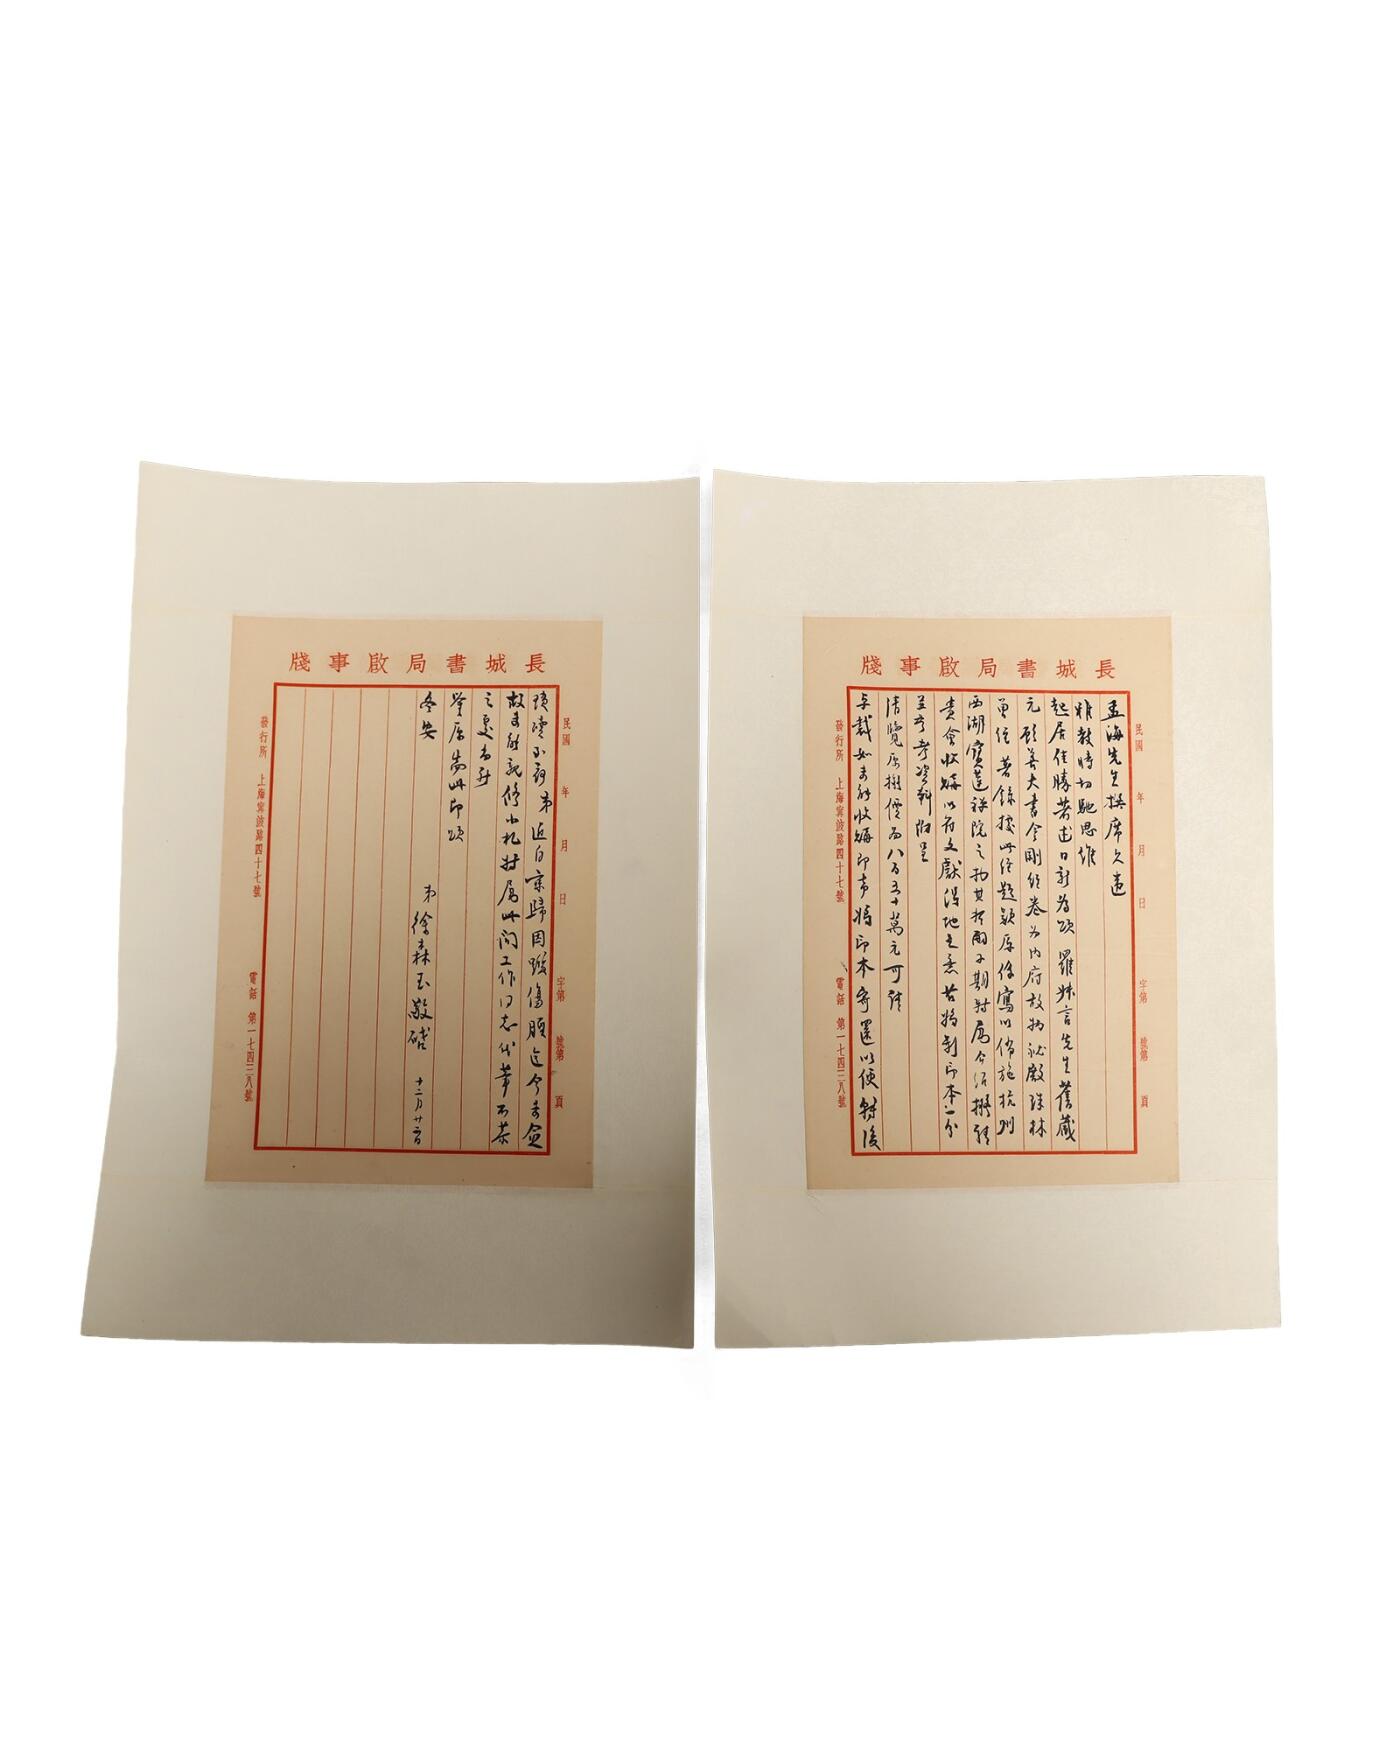 長城書局啟事牋
民國 年 月 日 字第 號第 頁
孟海先生撰席久違
雅教時切馳思維
起居佳勝著述日新為頌 羅叔言先生舊藏
元顧善夫書金剛經卷為內府故物祕殿珠林
曾經著錄據此經題識原係寫以佈施杭州
西湖寶蓮禅院之物其哲嗣子期對屬介紹擬請
貴會收購以符文獻得地之意茲將影印本一分
並參考資料附呈
清覽原擬價為八百五十萬元可請
卓裁如未能收購即希將印本寄還以便轉復
發行所 上海寧波路四十七號 電話 第一七四二八號
長城書局啟事牋
民國 年 月 日 字第 號第 頁
瑣瀆不罪弟近自京歸因跌傷頤迄今未愈
故未能親修小札特屬此間工作同志代筆不恭
之處尚祈
鑒原為此即頌
冬安
弟徐森玉敬啟 十二月廿二日
發行所 上海寧波路四十七號 電話 第一七四二八號